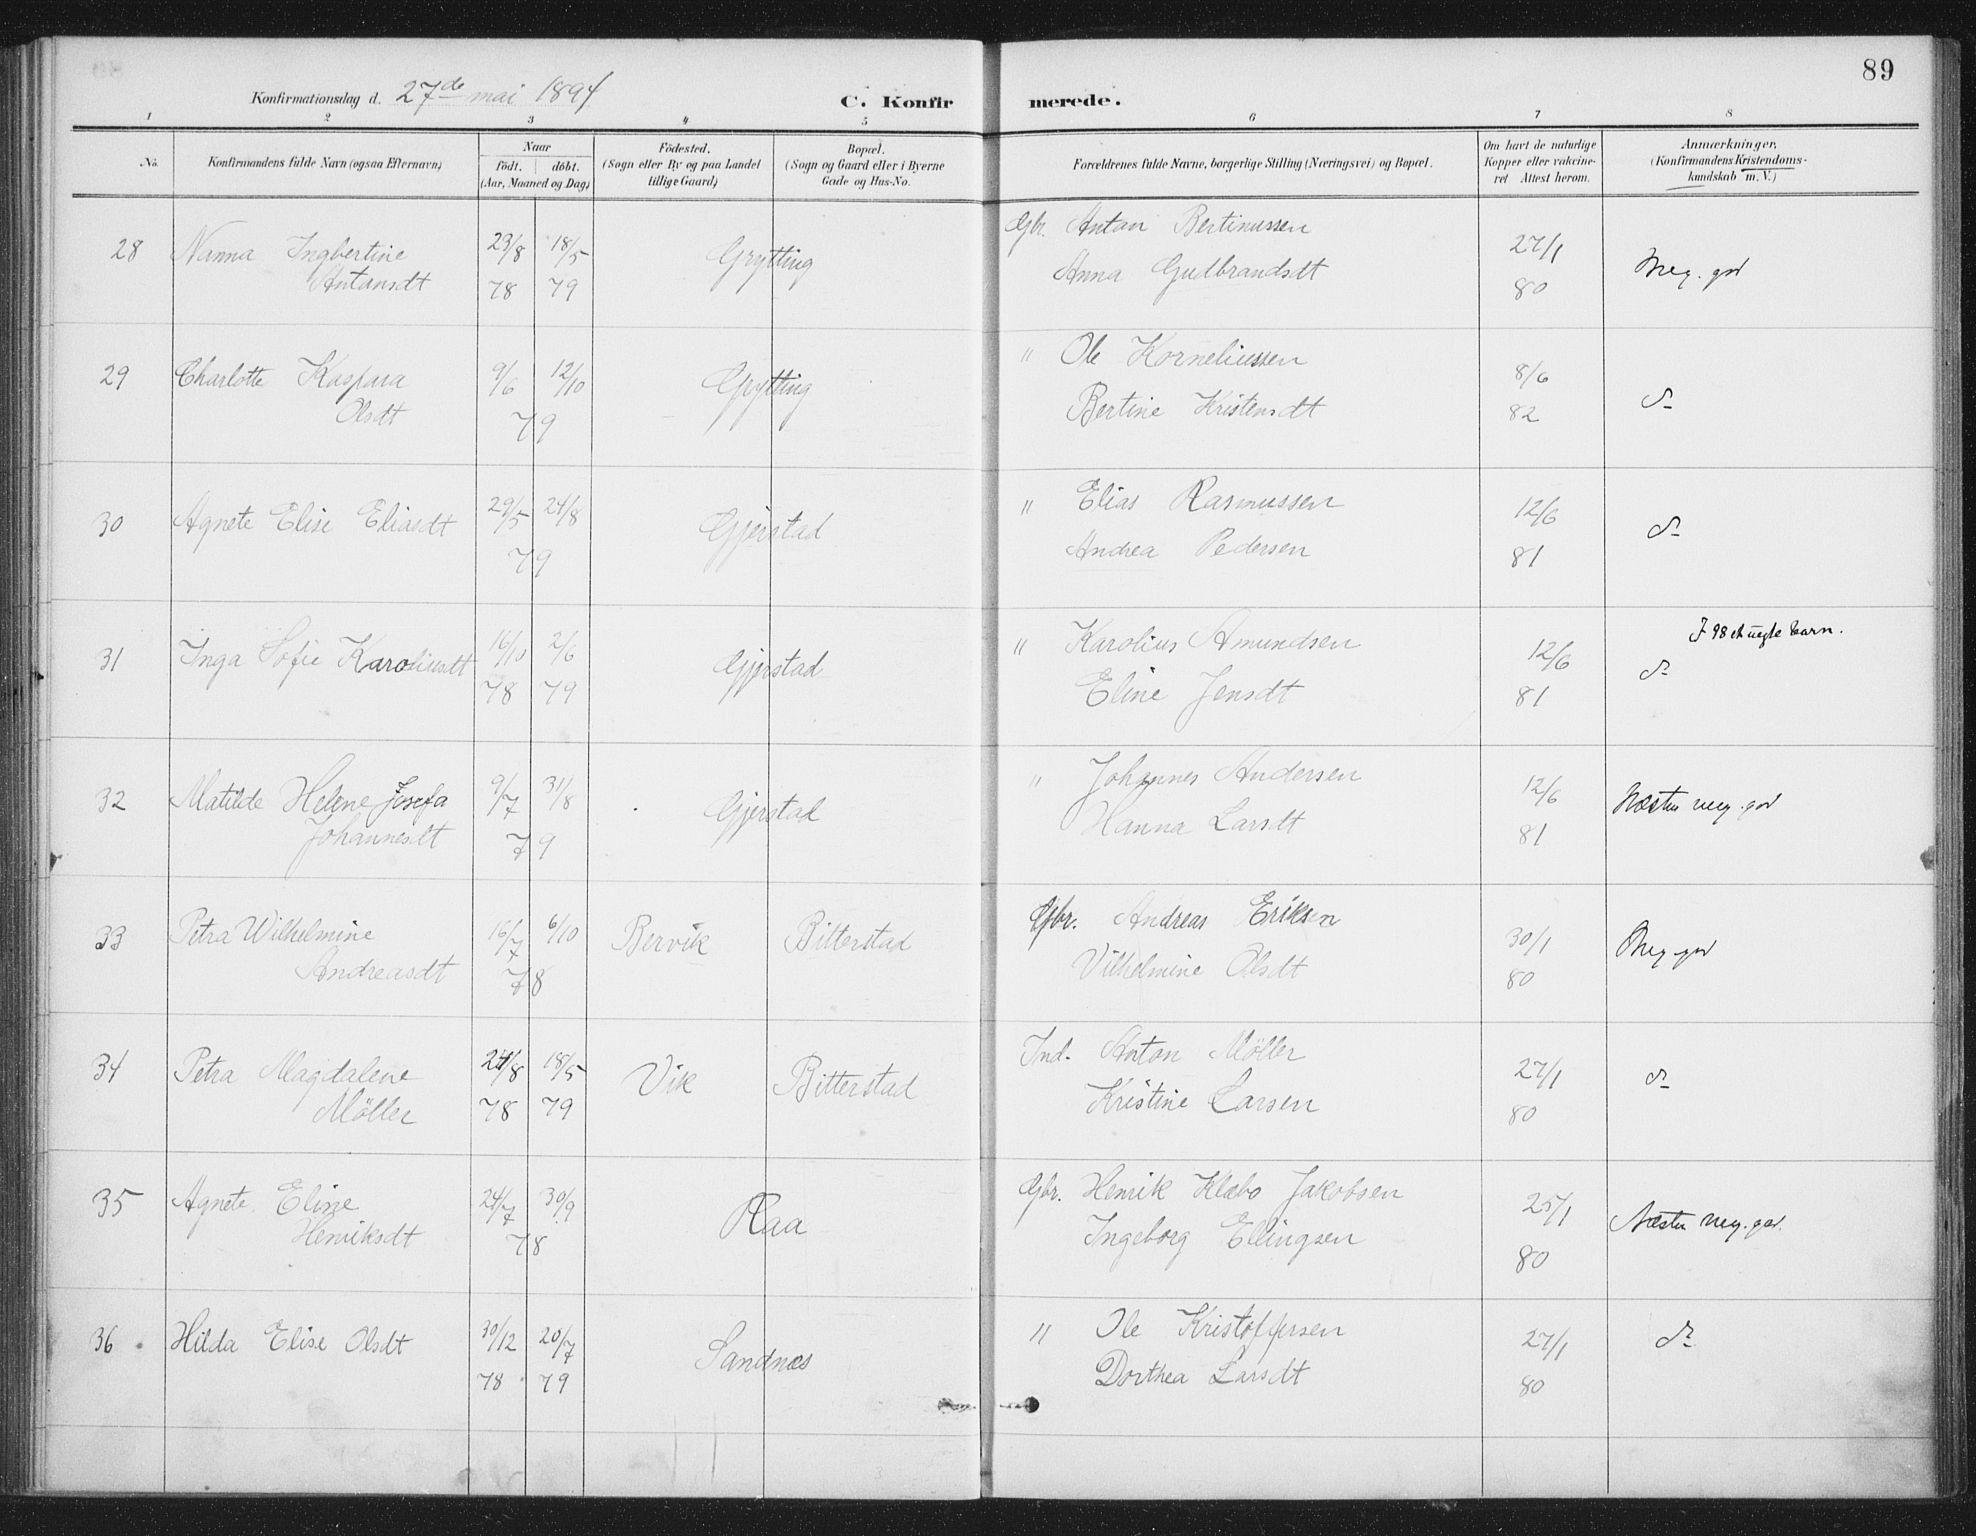 89
Konfirmationsdag d. 27de mai 1894
C. Konfirmerede.
1 2 3 4 5 6 7 8
No. Konfirmandens fulde Navn (ogsaa Efternavn) Naar födt. döbt. (Aar, Maaned og Dag) Födested. (Sogn eller By og paa Landet tillige Gaard) Bopæl. (Sogn og Gaard eller i Byerne Gade og Hus-No. Forældrenes fulde Navne, borgerlige Stilling (Næringsvei) og Bopæl. Om havt de naturlige Kopper eller vakcineret Attest herom. Anmærkninger, (Konfirmandens Kristendomskundskab m. V.)
28 Nanna Ingbertine 23/8 18/5 Grytting Gbr. Anton Bertinussen 27/1 Meg. god
Antonsdt 78 79 Anna Gudbrandsdt 80
29 Charlotte Kaspara 9/6 12/10 Grytting " Ole Korneliussen 8/6 d-
Olsdt 79 Bertine Kristensdt 82
30 Agnete Elise Eliasdt 29/5 24/8 Gjerstad " Elias Rasmussen 12/6 d-
79 Andrea Pedersen 81
31 Inga Sofie Karoliusdt 16/10 2/6 Gjerstad " Karolius Amundsen 12/6 d- I 98 et uegte barn.
78 79 Eline Jensdt 81
32 Matilde Helene Josefa 9/7 31/8 Gjerstad " Johannes Andersen 12/6 Næsten meg. god
Johannesdt 79 Hanna Larsdt 81
33 Petra Wilhelmine 16/7 6/10 Bervik Bitterstad Gbr. Andreas Eriksen 30/1 Meg. god
Andreasdt 78 Vilhelmine Olsdt 80
34 Petra Magdalene 24/8 18/5 Vik Bitterstad Ind. Anton Möller 27/1 d-
Möller 78 79 Kristine Larsen 80
35 Agnete Eline 24/7 30/9 Raa Gbr. Henrik Klæbo Jakobsen 25/1 Næsten meg. god.
Henriksdt 78 Ingeborg Ellingsen 80
36 Hilda Elise Olsdt 30/12 20/7 Sandnes " Ole Kristoffersen 27/1 d-
78 79 Dorthea Larsdt 80